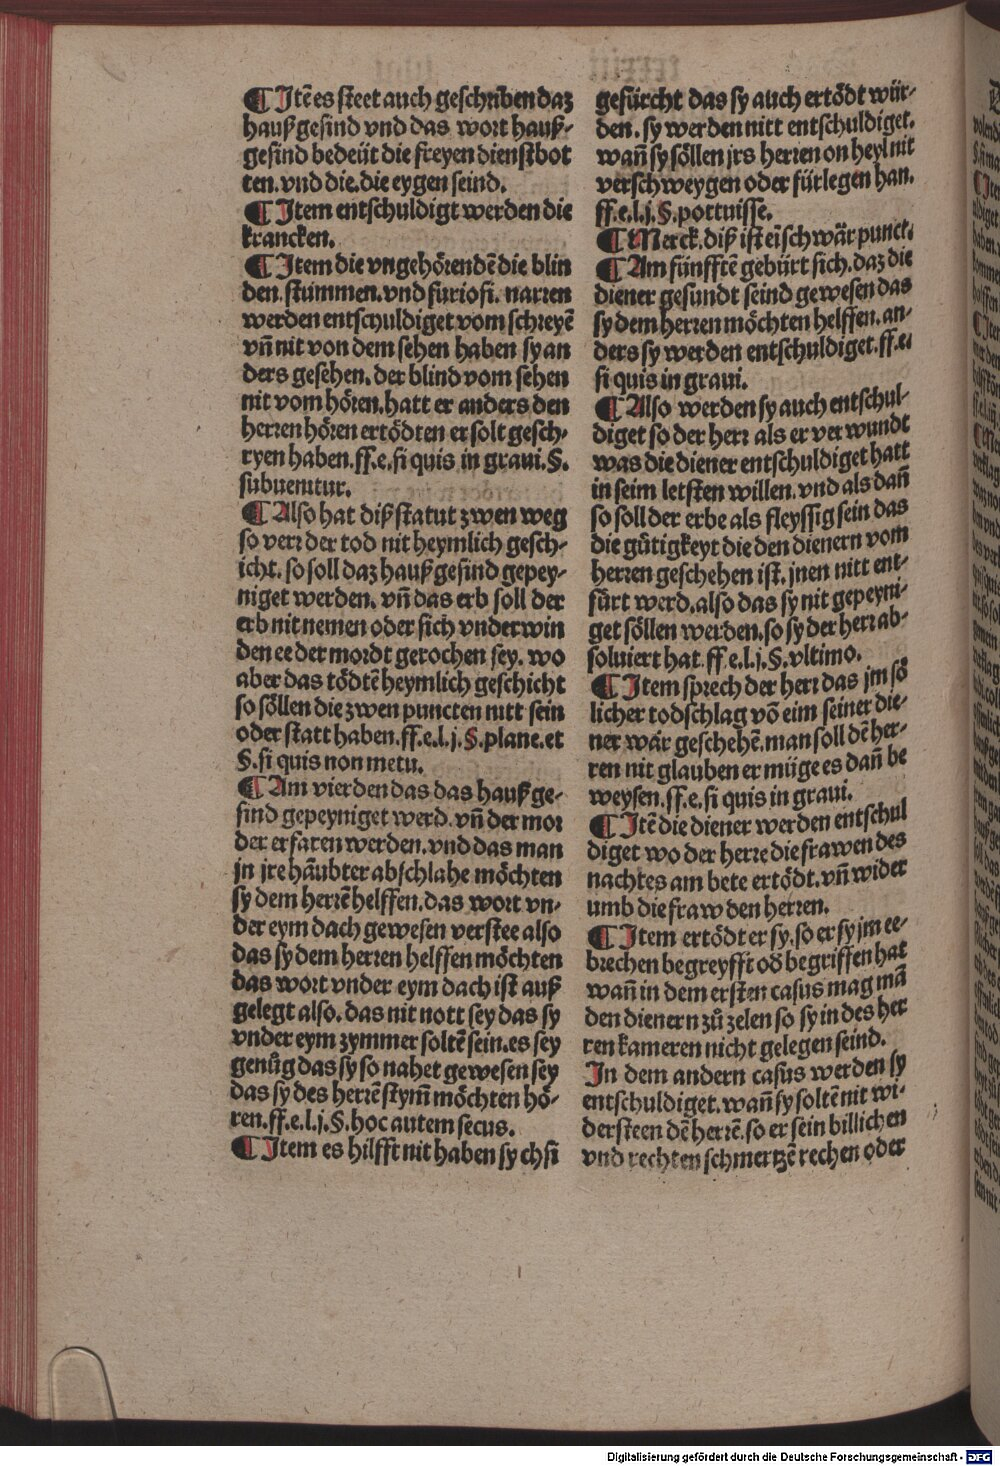 ¶ Itē es steet auch geschriben daz
haußgesind vnd das wort hauß-
gesind bedeüt die freyen dienstbot
ten. vnd die. die eygen seind.
¶ Item entschuldigt werden die
krancken.
¶ Item die vngehörendē die blin
den. stummen. vnd furiosi. narren
werden entschuldiget vom schreyē
vn̄ nit von dem sehen haben sy an
ders gesehen. der blind vom sehen
nit vom hören. hatt er anders den
herren hören ertödten er solt gesch-
ryen haben. ff. e. si quis in graui. §.
subuenitur.
¶ Also hat diß statut zwen weg
so verr der tod nit heymlich gesch-
icht. so soll daz haußgesind gepey-
niget werden. vn̄ das erb soll der
erb nit nemen oder sich vnderwin
den ee der mordt gerochen sey. wo
aber das tödtē heymlich geschicht
so söllen die zwen puncten nitt sein
oder statt haben. ff. e. l. j. §. plane. et
§. si quis non metu.
¶ Am vierden das das haußge-
sind gepeyniget werd. vn̄ der mor
der erfaren werden. vnd das man
jn jre häubter abschlahe möchten
sy dem herrē helffen. das wort vn-
der eym dach gewesen verstee also
das sy dem herren helffen möchten
das wort vnder eym dach ist auß
gelegt also. das nit nott sey das sy
vnder eym zymmer soltē sein. es sey
genůg das sy so nahet gewesen sey
das sy des herrē stym̄ möchten hö-
ren. ff. e. l. j. §. hoc autem secus.
¶ Item es hilfft nit haben sy ch si
gefürcht das sy auch ertödt wür-
den. sy werden nitt entschuldiget.
wan̄ sy söllen jrs herren on heyl nit
verschweygen oder fürlegen han.
ff. e. l. j. §. pottuisse.
¶ Merck. diß ist eī schwär punct.
¶ Am fünfftē gebürt sich. daz die
diener gesundt seind gewesen das
sy dem herren möchten helffen. an-
ders sy werden entschuldiget. ff. e.
si quis in graui.
¶ Also werden sy auch entschul-
diget so der herr als er verwundt
was die diener entschuldiget hatt
in seim letsten willen. vnd als dan̄
so soll der erbe als fleyssig sein das
die gůtigkeyt die den dienern vom
herren geschehen ist. jnen nitt ent-
fürt werd. also das sy nit gepeyni-
get söllen werden. so sy der herr ab-
soluiert hat. ff. e. l. j. §. vltimo.
¶ Item sprech der herr das jm sö
licher todschlag vō eim seiner die-
ner wär geschehē. man soll dē her-
ren nit glauben er müge es dan̄ be
weysen. ff. e. si quis in graui.
¶ Itē die diener werden entschul
diget wo der herre die frawen des
nachtes am bete ertödt. vn̄ wider
umb die fraw den herren.
¶ Item ertödt er sy. so er sy jm ee-
brechen begreyfft od̄ begriffen hat
wan̄ in dem ersten casus mag mā
den dienern zů zelen so sy in des her
ren kameren nicht gelegen seind.
In dem andern casus werden sy
entschuldiget. wan̄ sy soltē nit wi-
dersteen dē herrē. so er sein billichen
vnd rechten schmertzē rechen oder
Digitalisierung gefördert durch die Deutsche Forschungsgemeinschaft - DFG